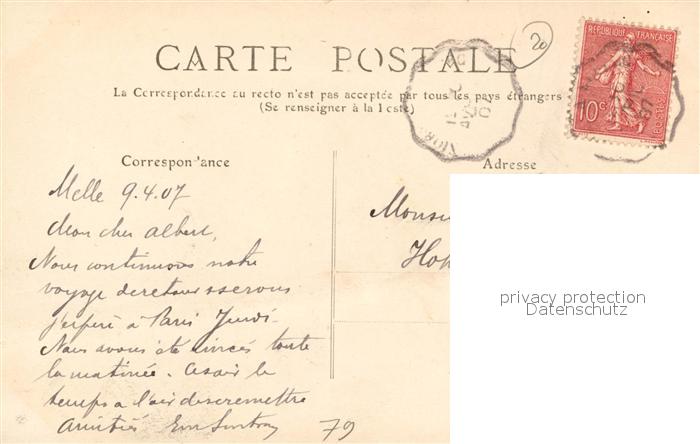 20
CARTE POSTALE
RÉPUBLIQUE FRANÇAISE
10c
POSTES
La Correspondance au recto n'est pas acceptée par tous les pays étrangers
(Se renseigner à la Poste)
Correspondance
Melle 9.4.07
Mon cher Albert,
Nous continuons notre
voyage de retour & serons
j'espère à Paris Jeudi.
Nous avons été rincés toute
la matinée. Ce soir le
temps a l'air de se remettre
Amitiés
79
Adresse
Monsieu
privacy protection
Datenschutz